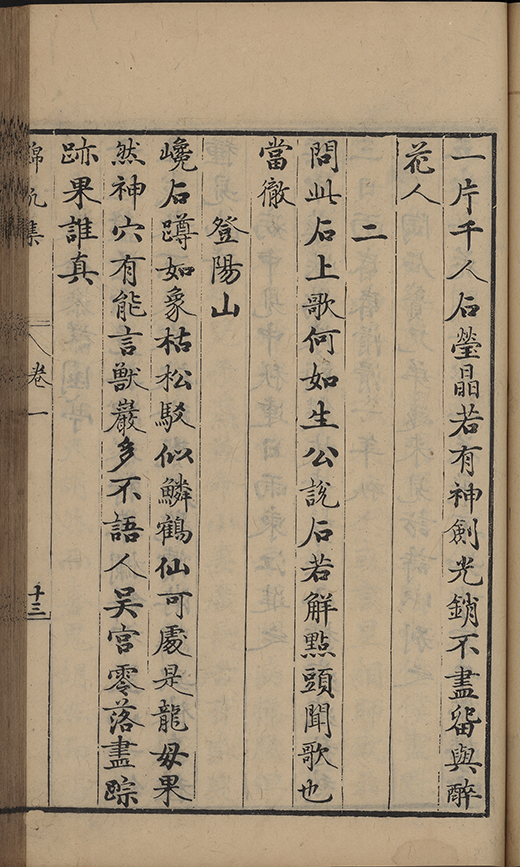 一片千人石瑩晶若有神劍光銷不盡畱與醉
花人
二
問此石上歌何如生公說石若解點頭聞歌也
當徹
登陽山
巉石蹲如象枯松駁似鱗鶴仙可處是龍毋果
然神穴有能言獸巖多不語人吳宮零落盡踪
跡果誰真
錦帆集
卷一
十三